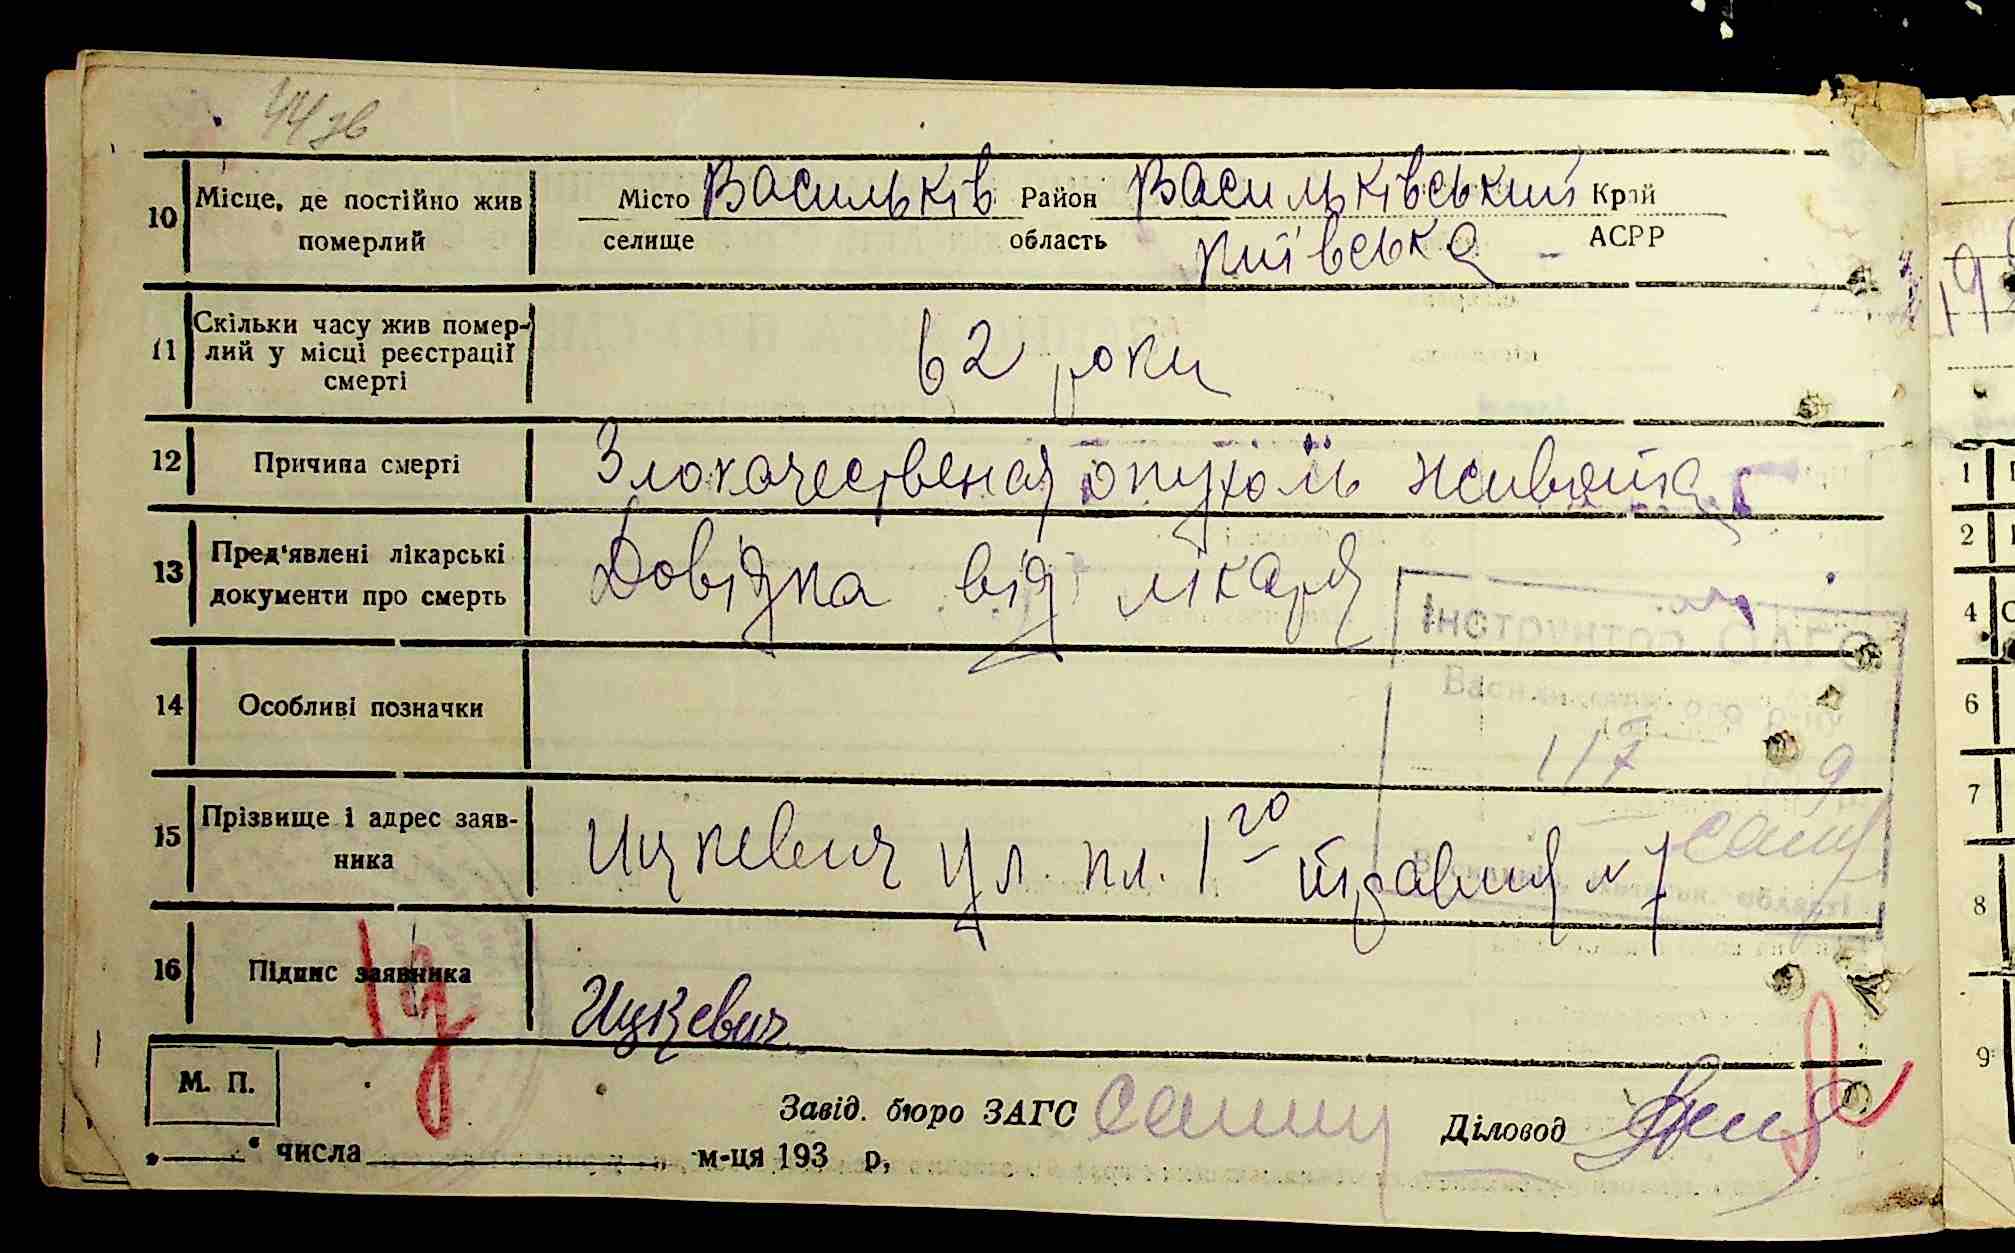 44 зв
10 Місце, де постійно жив померлий
Місто Васильків Район Васильківський Край
селище область Київська - АСРР
11 Скільки часу жив помер-
лий у місці реєстрації
смерті
62 роки
12 Причина смерті Злокачественая опухоль живота
13 Пред'явлені лікарські
документи про смерть
Довідка від лікаря
Інструктор ЗАГС
14 Особливі позначки
117
15 Прізвище і адрес заяв-
ника
Ицкевич ул. пл. 1го травня № 7
16 Підпис заявника Ицкевич
М. П.
Завід. бюро ЗАГС Діловод
„ " числа м-ця 193 р,
1
2
4
6
7
8
9